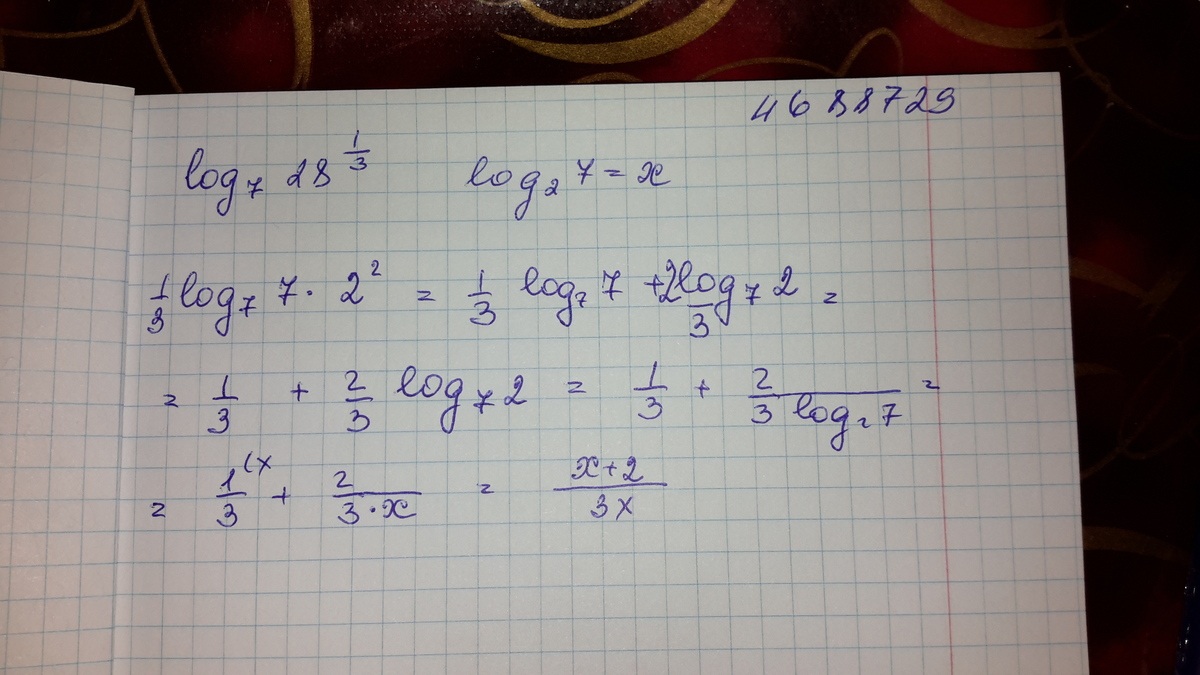 4688729
log₇ 28^(1/3) log₂ 7 = x
1/3 log₇ 7 · 2² = 1/3 log₇ 7 + 2log₇ 2/3 =
= 1/3 + 2/3 log₇ 2 = 1/3 + 2/(3 log₂ 7) =
= 1/3 (x + 2/(3·x) = (x+2)/(3x)